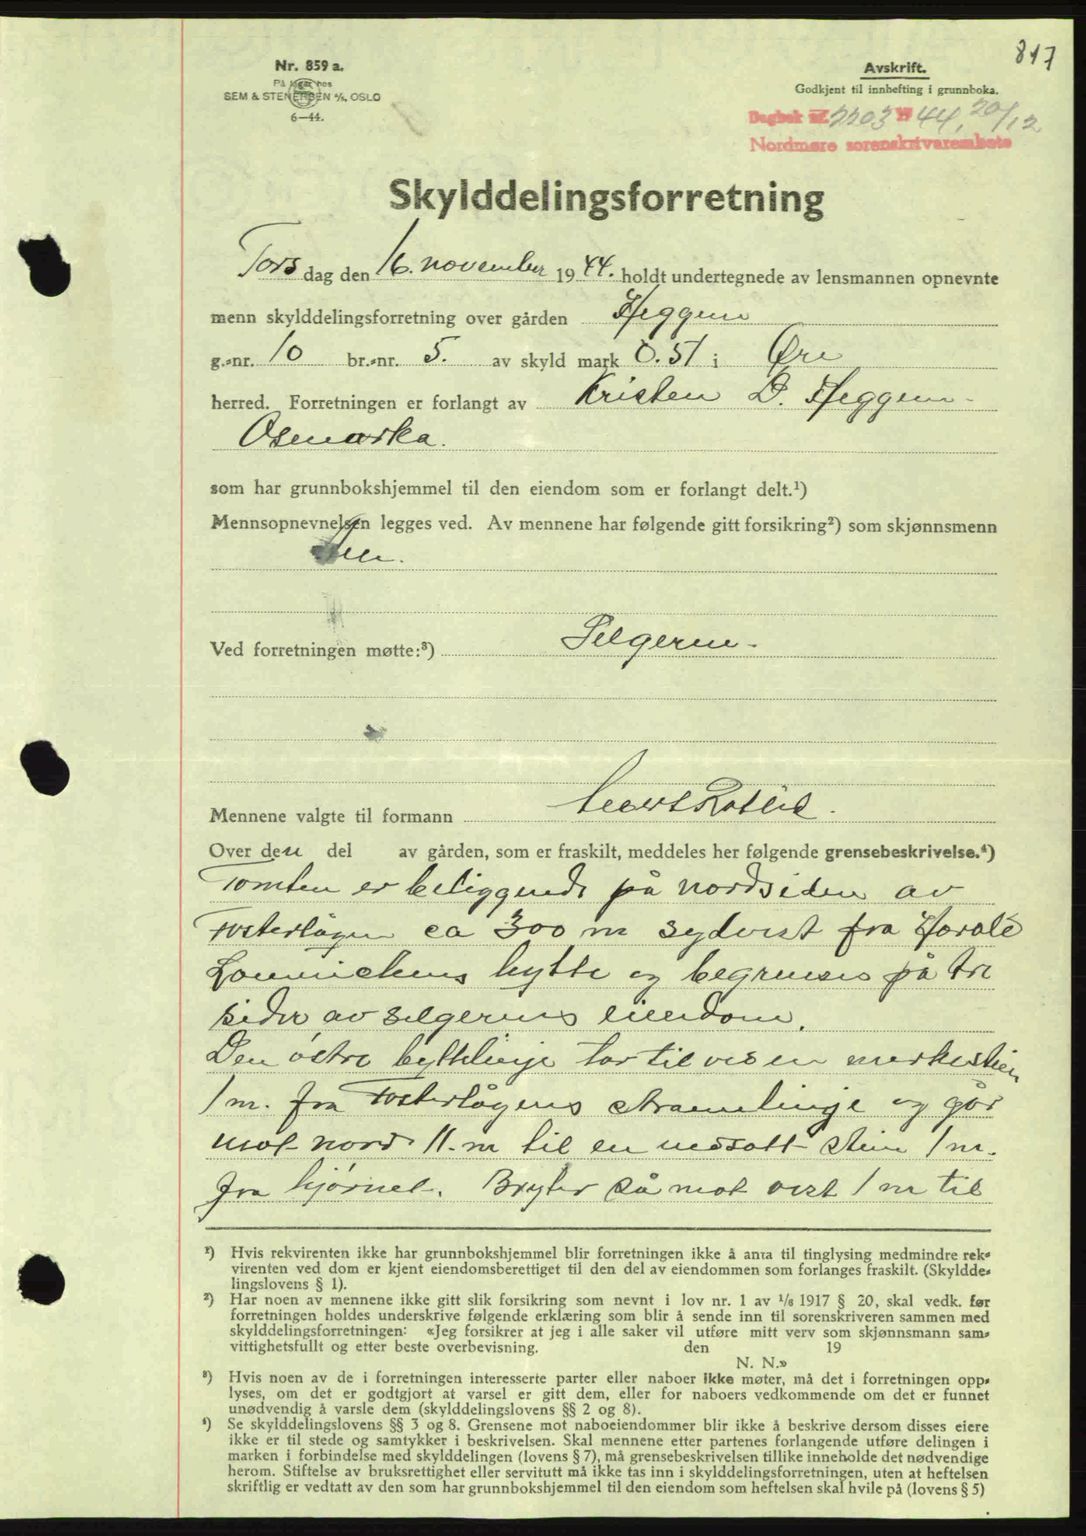 817
Nr. 859 a.
På lager hos
SEM & STENERSEN A/S, OSLO
6—44.
Avskrift.
Godkjent til innhefting i grunnboka.
Dagbok nr. 2203 19 44, 20/12
Nordmøre sorenskrivarembete
Skylddelingsforretning
Torsdag den 16. november 1944. holdt undertegnede av lensmannen opnevnte
menn skylddelingsforretning over gården Heggem
g.-nr. 10 br.-nr. 5. av skyld mark 0.51 i Øre
herred. Forretningen er forlangt av Kristen D. Heggem
Osmarka.
som har grunnbokshjemmel til den eiendom som er forlangt delt.¹)
Mennsopnevnelsen legges ved. Av mennene har følgende gitt forsikring²) som skjønnsmenn
Ved forretningen møtte:³) Selgeren.
Mennene valgte til formann
Over den del av gården, som er fraskilt, meddeles her følgende grensebeskrivelse.⁴)
Tomten er beliggende på nordsiden av
Fosterlågen ca 300 m sydvest fra Harald
hytte og begrenses på tre
sider av selgerens eiendom.
Den østre byttelinje tar til ved en merkestein
1 m. fra Fosterlågens strandlinje og går
mot nord 11. m til en nedsatt stein 1 m.
fra hjørnet. Bryter så mot vest 1 m til
¹) Hvis rekvirenten ikke har grunnbokshjemmel blir forretningen ikke å anta til tinglysing medmindre rek-
virenten ved dom er kjent eiendomsberettiget til den del av eiendommen som forlanges fraskilt. (Skyldde-
lingslovens § 1).
²) Har noen av mennene ikke gitt slik forsikring som nevnt i lov nr. 1 av 1/6 1917 § 20, skal vedk. før
forretningen holdes underskrive følgende erklæring som blir å sende inn til sorenskriveren sammen med
skylddelingsforretningen: «Jeg forsikrer at jeg i alle saker vil utføre mitt verv som skjønnsmann sam-
vittighetsfullt og etter beste overbevisning. den 19
N. N.»
³) Hvis noen av de i forretningen interesserte parter eller naboer ikke møter, må det i forretningen opp-
lyses, om det er godtgjort at varsel er gitt dem, eller for naboers vedkommende om det er funnet
unødvendig å varsle dem (skylddelingslovens §§ 2 og 8).
⁴) Se skylddelingslovens §§ 3 og 8. Grensene mot naboeiendommer blir ikke å beskrive dersom disses eiere
ikke er til stede og samtykker i beskrivelsen. Skal mennene etter partenes forlangende utføre delingen i
marken i forbindelse med skylddelingen (lovens § 7), må grensebeskrivelsen tillike inneholde det nødvendige
herom. Stiftelse av bruksrettighet eller servitutt må ikke tas inn i skylddelingsforretningen, uten at heftelsen
skriftlig er vedtatt av den som har grunnbokshjemmel til den eiendom som heftelsen skal hvile på (lovens § 5)